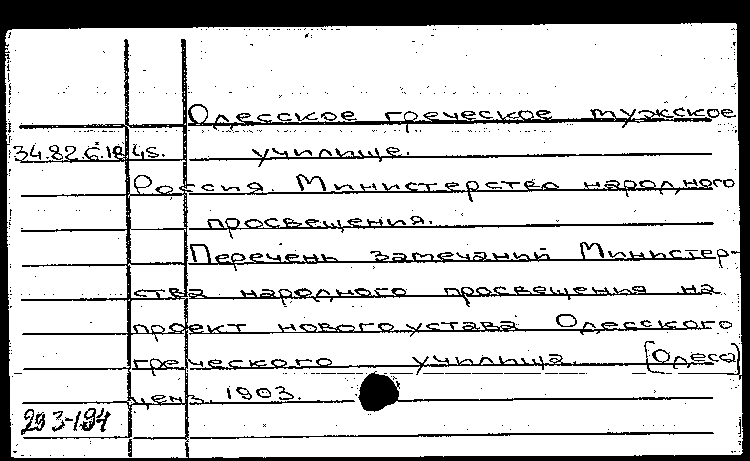 Одесское греческое мужское
34.82.6.1845. училище.
Россия. Министерство народного
просвещения.
Перечень замечаний Министер-
ства народного просвещения на
проект нового устава Одесского
греческого училища. [Одеса]
ценз. 1903.
293-194